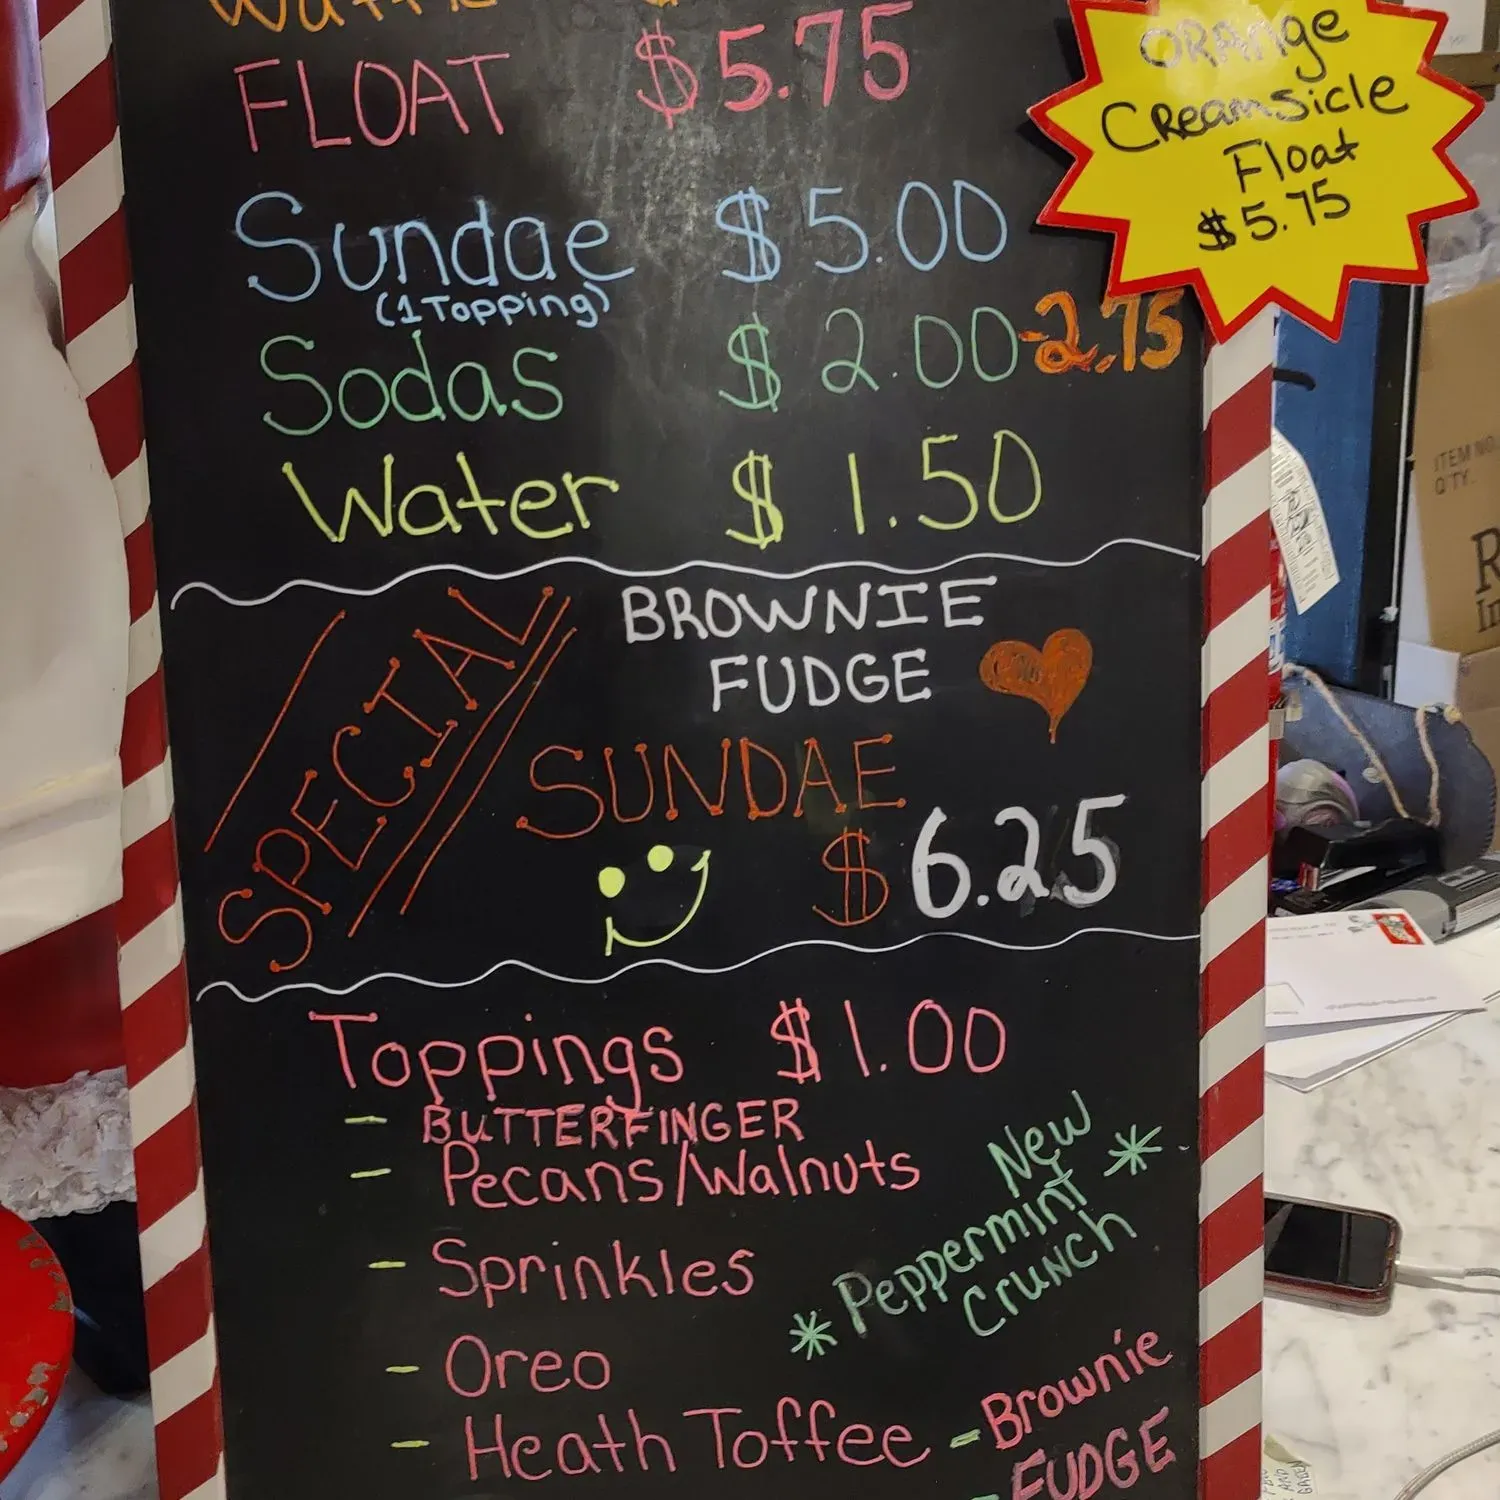 Waffle
FLOAT $5.75
ORANge
CReamsicle
Float
$5.75
Sundae $5.00
(1 Topping)
Sodas $2.00-2.75
Water $1.50
SPECIAL
BROWNIE
FUDGE
SUNDAE
$6.25
Toppings $1.00
- BUTTERFINGER
- Pecans/Walnuts
- Sprinkles
- Oreo
- Heath Toffee
* New
Peppermint
Crunch *
- Brownie
- FUDGE
ITEM NO.
Q'TY.